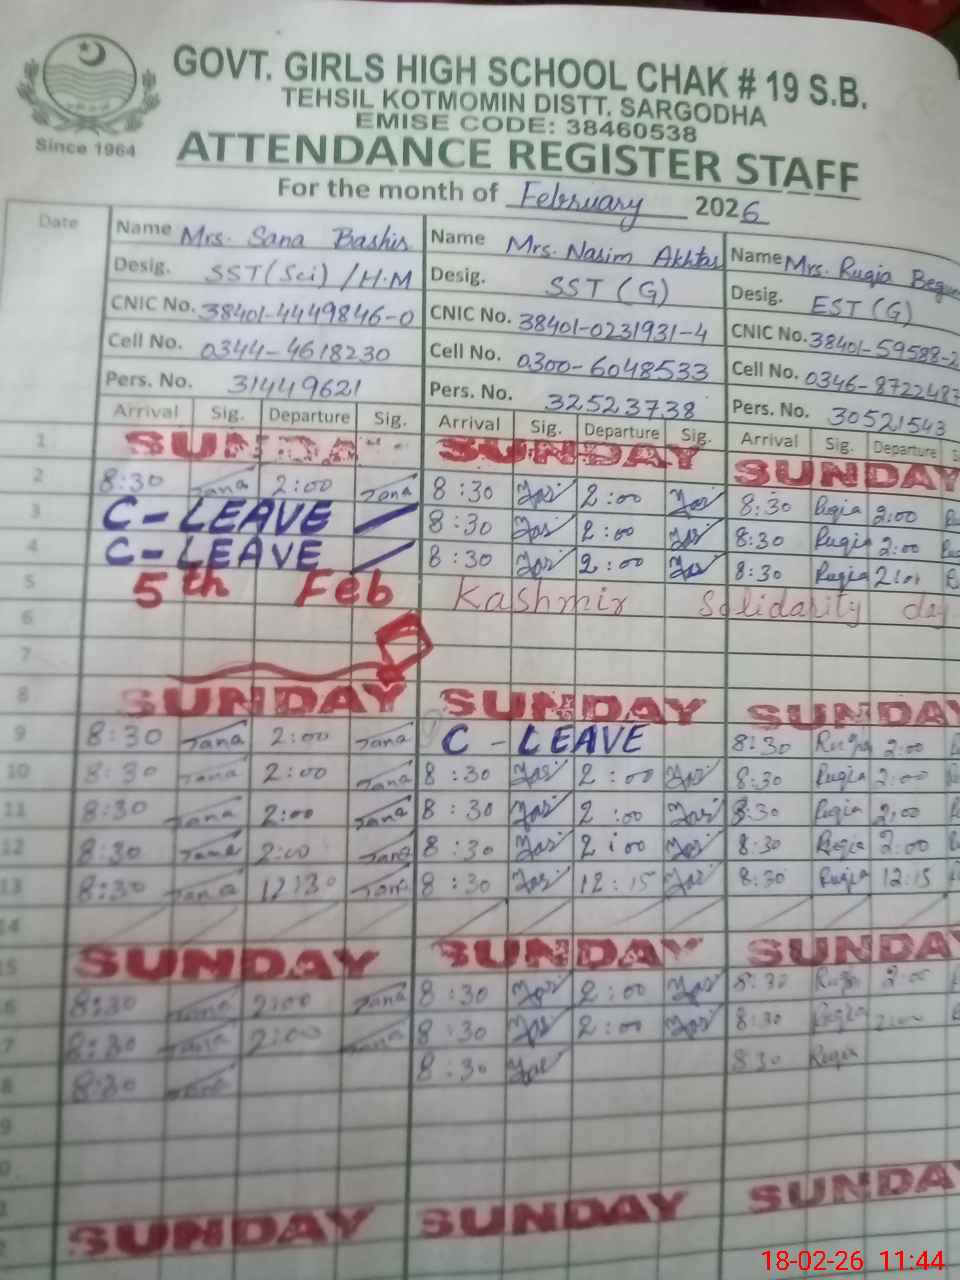 GOVT. GIRLS HIGH SCHOOL CHAK # 19 S.B.
TEHSIL KOTMOMIN DISTT. SARGODHA
EMISE CODE: 38460538
Since 1964
ATTENDANCE REGISTER STAFF
For the month of February 2026
Date Name Mrs. Sana Bashir Name Mrs. Nasim Akhtar Name Mrs. Ruqia
Desig. SST(Sci) / H.M Desig. SST (G) Desig. EST (G)
CNIC No. 38401-4449846-0 CNIC No. 38401-0231931-4 CNIC No. 38401-59588-2
Cell No. 0344-4618230 Cell No. 0300-6048533 Cell No. 0346-8722487
Pers. No. 31449621 Pers. No. 32523738 Pers. No. 30521543
Arrival Sig. Departure Sig. Arrival Sig. Departure Sig. Arrival Sig. Departure
1 SUNDA SUNDAY SUNDAY
2 8:30 Sana 2:00 Sana 8:30 2:00 8:30 Ruqia 2:00
3 C-LEAVE 8:30 2:00 8:30 Ruqia 2:00
4 C-LEAVE 8:30 2:00 8:30 Ruqia
5 5th Feb Kashmir Solidarity day
6
7
8 SUNDAY SUNDAY SUNDAY
9 8:30 Sana 2:00 Sana C-LEAVE 8:30 Ruqia 2:00
10 8:30 Sana 2:00 Sana 8:30 2:00 8:30 Ruqia 2:00
11 8:30 Sana 2:00 Sana 8:30 2:00 8:30 Ruqia 2:00
12 8:30 Sana 2:00 Sana 8:30 2:00 8:30 Ruqia 2:00
13 8:30 Sana 12:30 Sana 8:30 12:15 8:30 Ruqia 12:15
14
15 SUNDAY SUNDAY SUNDAY
6 8:30 Sana 2:00 Sana 8:30 2:00 8:30 Ruqia 2:00
7 8:30 Sana 2:00 Sana 8:30 2:00 8:30 Ruqia 2:00
8 8:30 Sana 8:30 8:30 Ruqia
9
0
SUNDAY SUNDAY SUNDAY
18-02-26 11:44